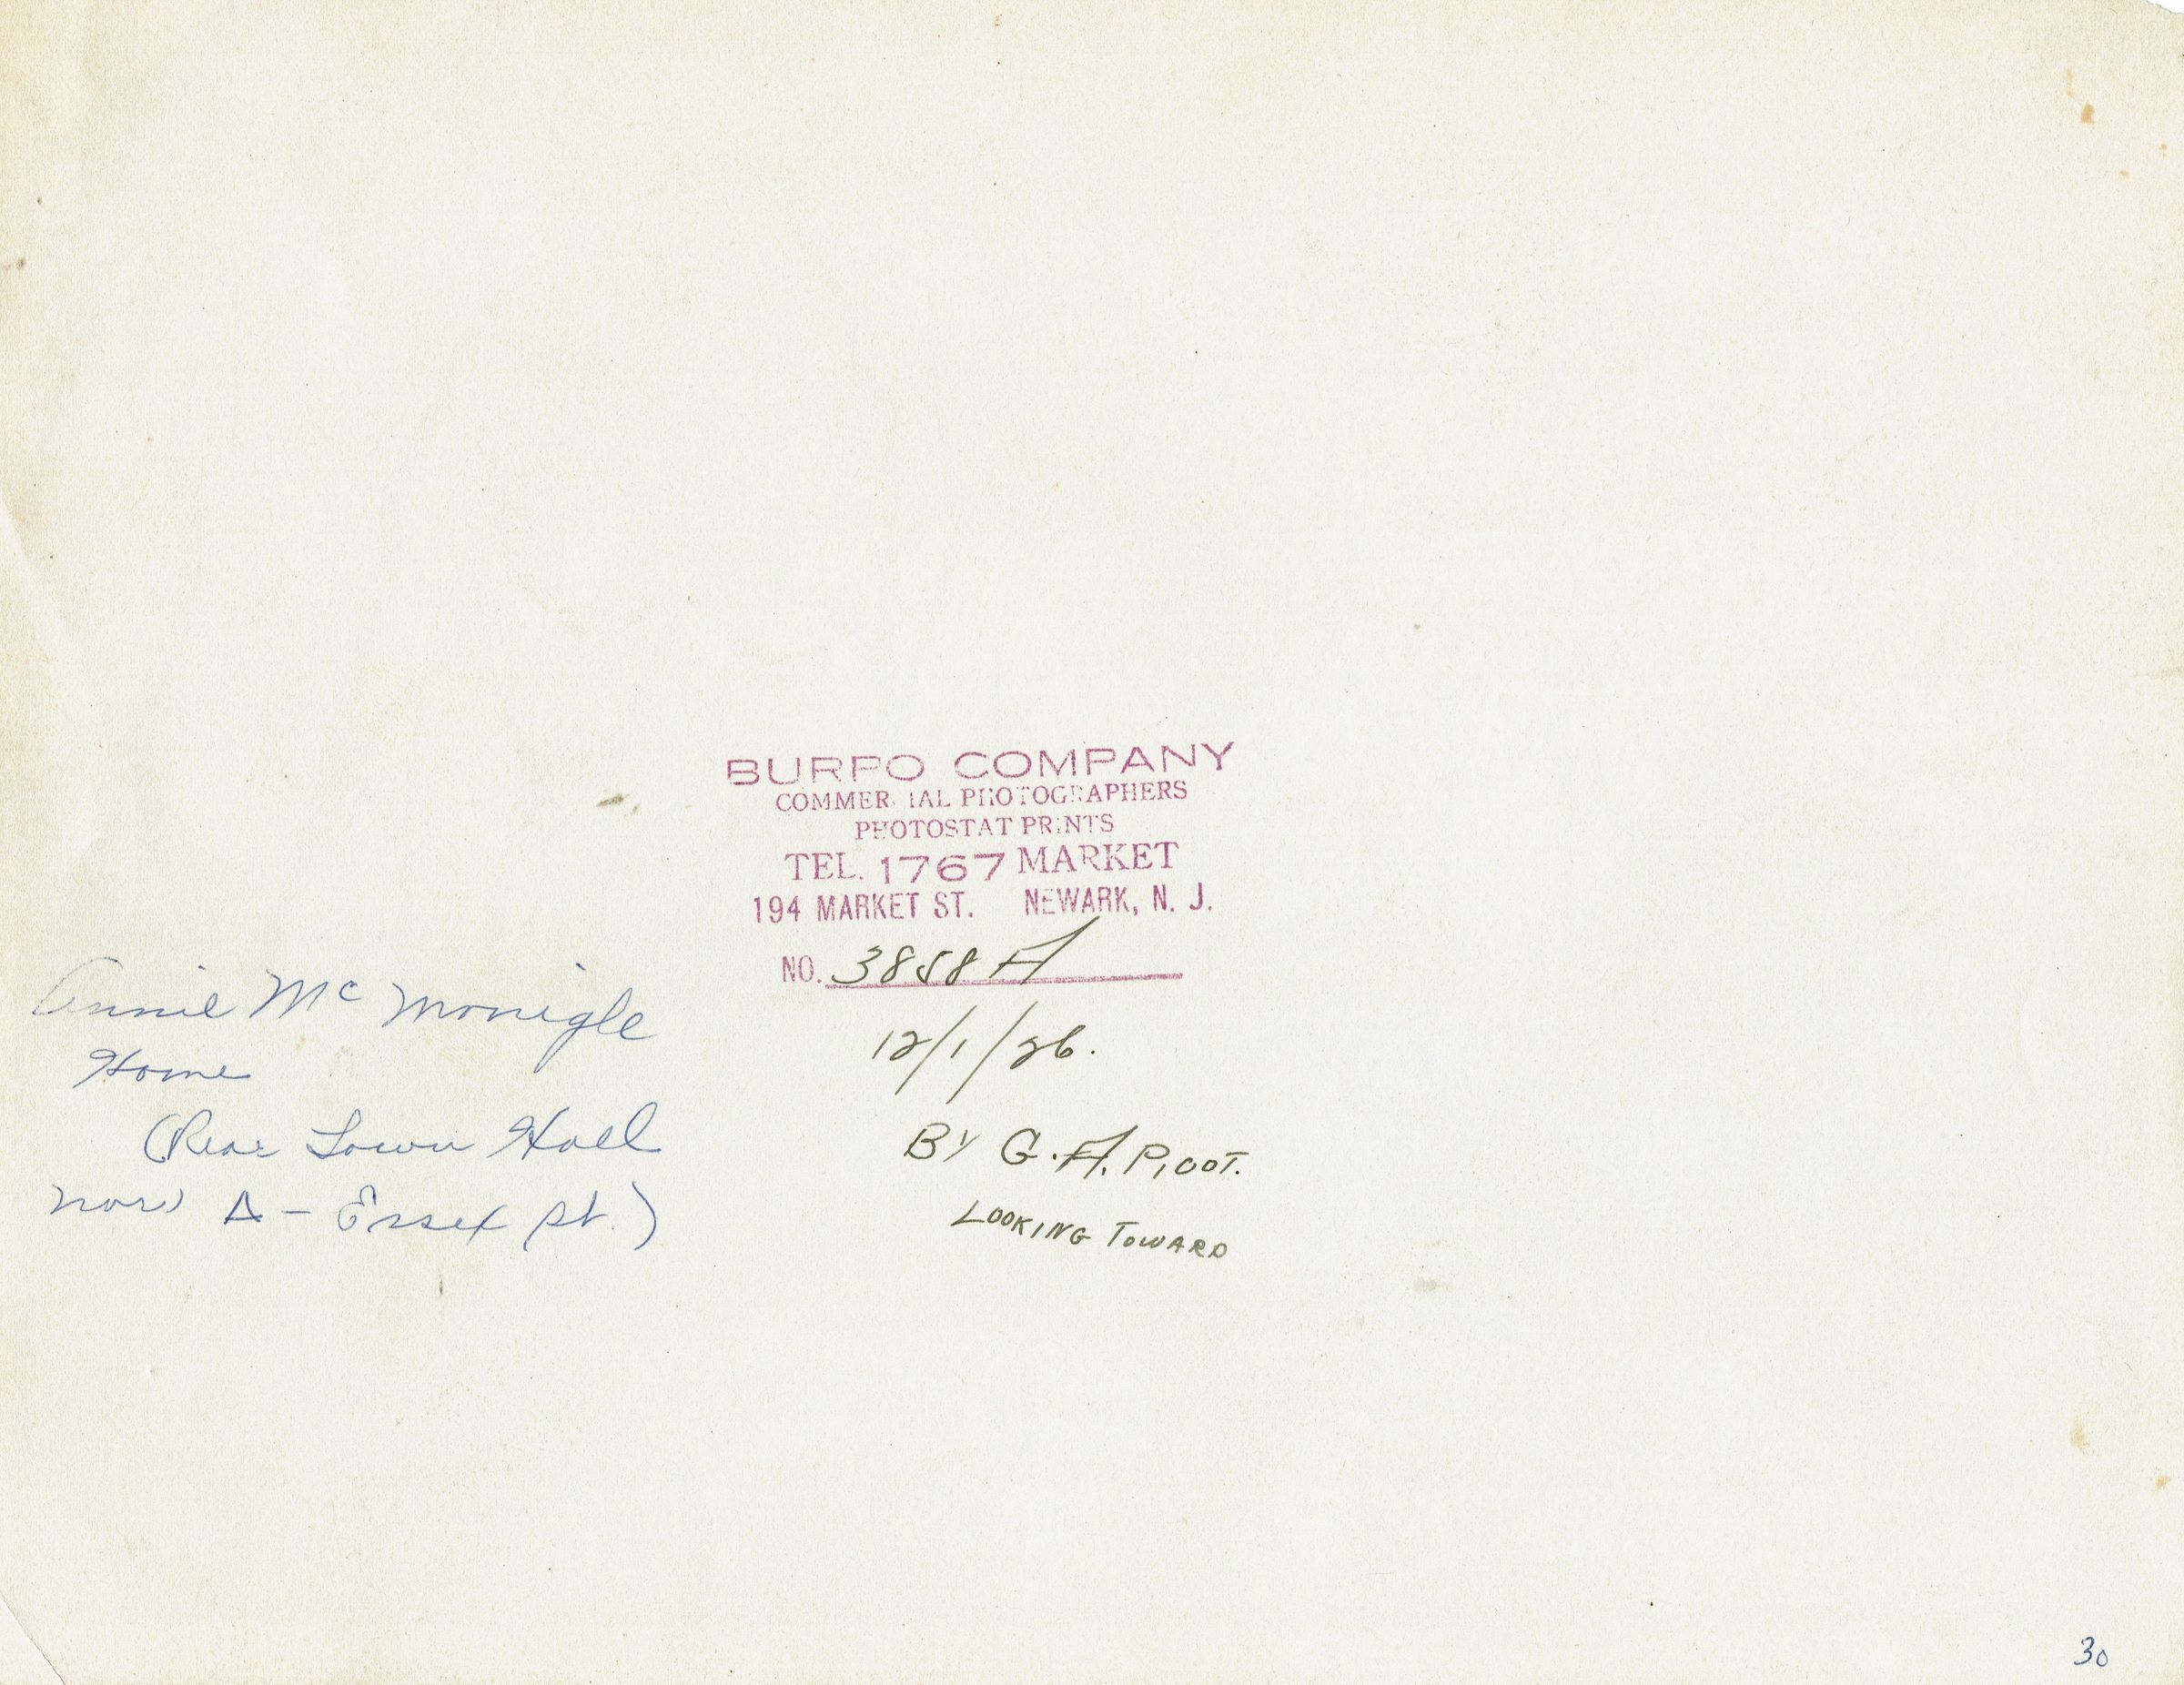 BURPO COMPANY
COMMERCIAL PHOTOGRAPHERS
PHOTOSTAT PRINTS
TEL. 1767 MARKET
194 MARKET ST. NEWARK, N. J.
NO. 3858 A
12/1/26.
BY G. A. PICOT.
LOOKING TOWARD
Annie Mc Monigle
Home
(Rear Town Hall
now A - Essex St.)
30